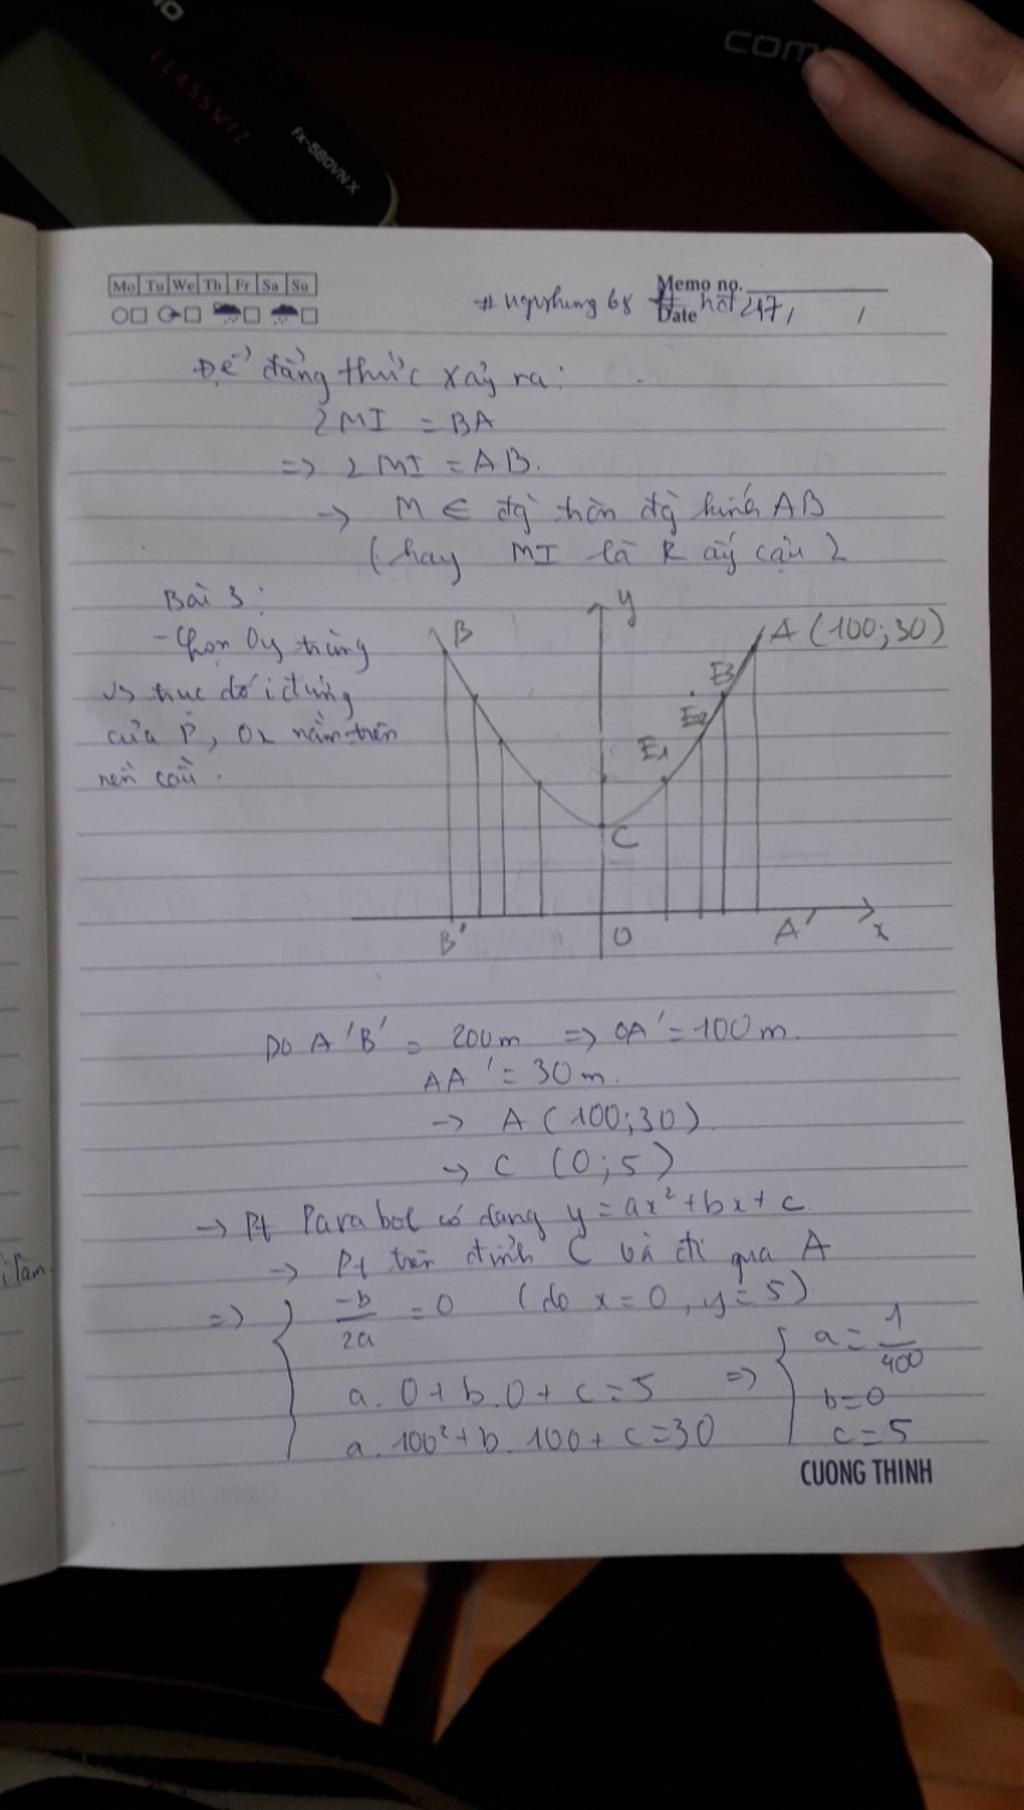 CLASSWIZ
fx-580VN X
COM
Mo Tu We Th Fr Sa Su
Memo no.
# nguhung 68 #
Date
hoi247
/ /
Để đẳng thức xảy ra:
2MI = BA
=> 2MI = AB.
-> M ∈ đg tròn đg kính AB
(hay MI là R ấy cậu
Bài 3:
- Chọn Oy trùng
vs trục đối xứng
của P, Ox nằm trên
nền cầu.
y
B
A (100;30)
E3
E2
E1
C
B'
O
A'
x
Do A'B' = 200m => OA' = 100m.
AA' = 30m.
-> A (100;30).
-> C (0;5)
-> Pt Parabol có dạng y = ax² + bx + c.
-> Pt trên đỉnh C và đi qua A
=> { -b/2a = 0 (do x=0, y=5)
a.0 + b.0 + c = 5
a.100² + b.100 + c = 30
=> { a = 1/400
b = 0
c = 5
CUONG THINH